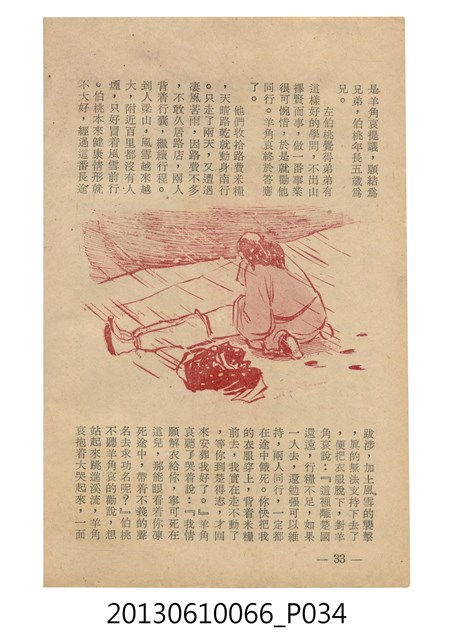 是羊角哀提議，願結爲
兄弟，伯桃年長五歲爲
兄。
左伯桃覺得弟弟有
這樣好的學問，不出山
擇賢而事，做一番事業
很可惋惜，於是就勸他
同行。羊角哀終於答應
了。
他們收拾路費米糧
，天晴路乾就動身南行
。只走了兩天，又遭遇
凄風苦雨，因路費不多
，不敢久居路店，兩人
背着行囊，繼續行程。
到人梁山，風雪越來越
大，附近百里都沒有人
煙，只好冒着風雪前行
。伯桃本來健康情形就
不大好，經過這番長途
跋涉，加上風雪的襲擊
，異的無法支持下去了
，便把衣服脫下，對羊
角哀說：『這裡離楚國
還遠，行糧不足，如果
一人去，還勉强可以維
持，兩人同行，一定都
在途中餓死。你快把我
的衣服穿上，背着米糧
前去，我實在走不動了
，等你到楚得志，才回
來安葬我好了。』羊角
哀聽了哭着說：『我情
願解衣給你，寧可死在
這兒，那能眼看着你凍
死途中，帶着不義的聲
名去求功名呢？』伯桃
不聽羊角哀的勸說，想
站起來跳進溪流，羊角
哀抱着大哭起來，一面
— 33 —
20130610066_P034